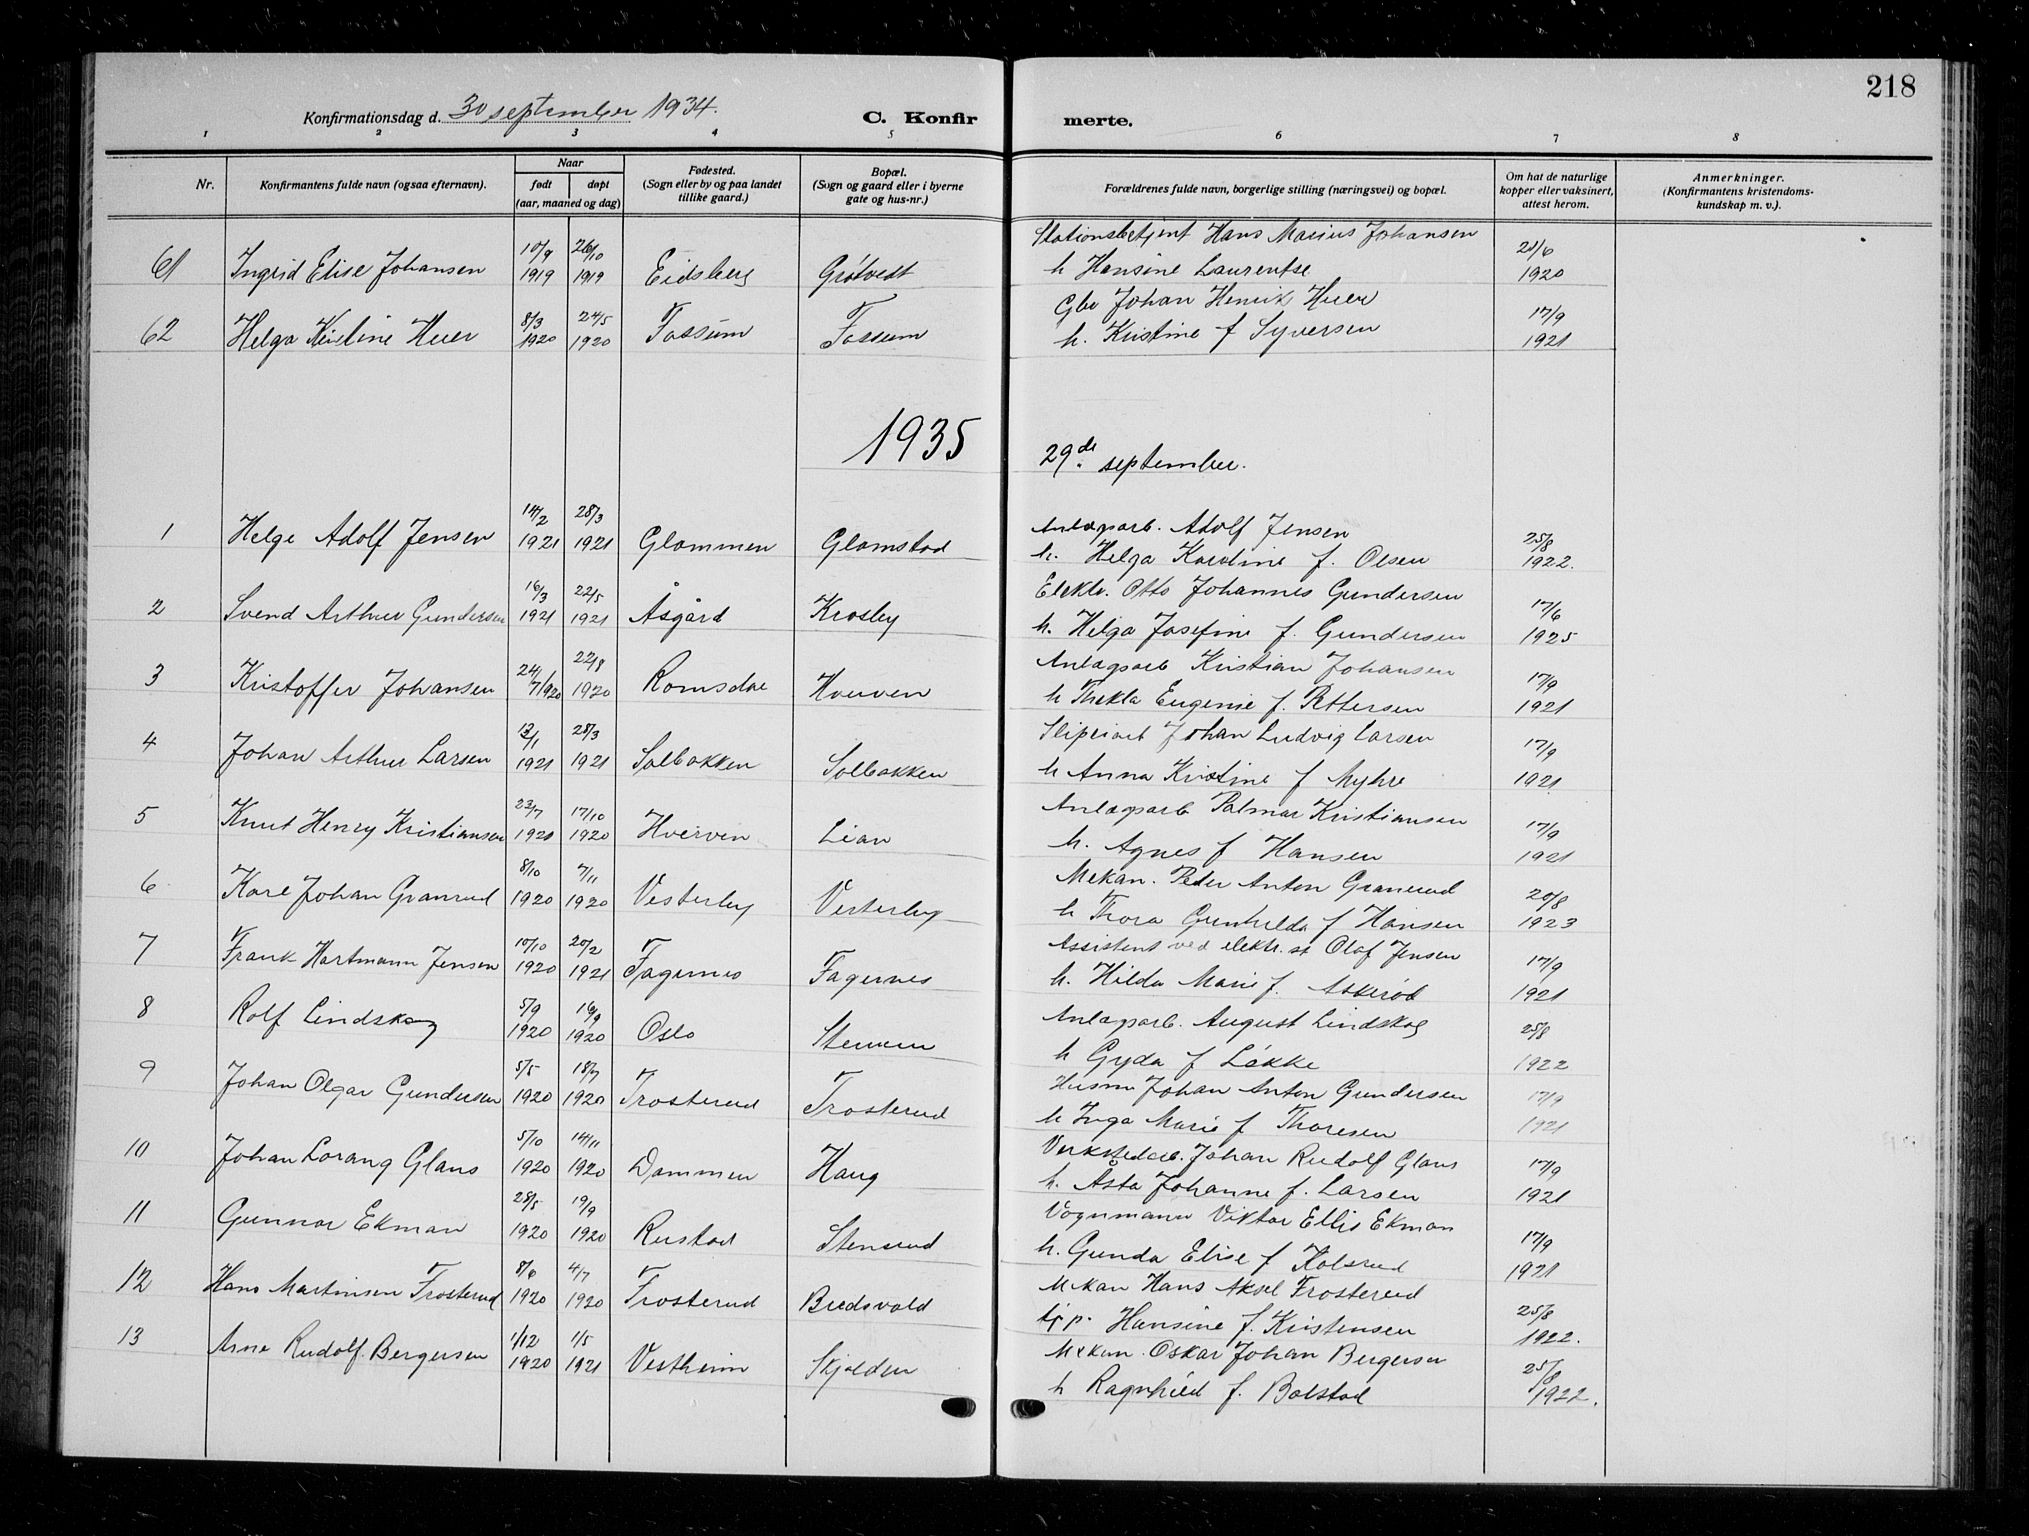 218
Konfirmationsdag d. 30 september 1934.
C. Konfir merte.
1 2 3 4 5 6 7 8
Nr.
Konfirmantens fulde navn (ogsaa efternavn).
Naar
født døpt
(aar, maaned og dag)
Fødested.
(Sogn eller by og paa landet
tillike gaard.)
Bopæl.
(Sogn og gaard eller i byerne
gate og hus-nr.)
Forældrenes fulde navn, borgerlige stilling (næringsvei) og bopæl.
Om hat de naturlige
kopper eller vaksinert,
attest herom.
Anmerkninger.
(Konfirmantens kristendoms-
kundskap m. v.).
61 Ingrid Elise Johansen 10/9 1919 26/10 1919 Eidsberg Grøtvedt
Stationsbetjent Hans Marius Johansen
h Hansine Laurentse 21/6 1920
62 Helga Kristine Huer 8/3 1920 24/5 1920 Fossum Fossum
Gbr Johan Henrik Huer
h. Kristine f Syversen 17/9 1921
1935 29de september.
1 Helge Adolf Jensen 14/2 1921 28/3 1921 Glommen Glomstad
Anlægsarb. Adolf Jensen
h. Helga Karoline f. Olsen 25/8 1922.
2 Svend Arthur Gundersen 16/3 1921 22/5 1921 Åsgård Krosby
Elektr. Otto Johannes Gundersen
h. Helga Josefine f. Gundersen 17/6 1925
3 Kristoffer Johansen 24/7 1920 22/8 1920 Romsdal Hverven
Anlægsarb Kristian Johansen
h Thekla Eugenie f. Pettersen 17/9 1921
4 Johan Arthur Larsen 13/1 1921 28/3 1921 Solbakken Solbakken
Sliperiarb Johan Ludvig Larsen
h Anna Kristine f Myhre 17/9 1921
5 Knut Henry Kristiansen 23/7 1920 17/10 1920 Hverven Lian
Anlægsarb Palmar Kristiansen
h. Agnes f Hansen 17/9 1921
6 Kåre Johan Granerud 8/10 1920 7/11 1920 Vesterby Vesterby
Mekan. Peder Anton Granerud
h Thora Gunhilda f Hansen 20/8 1923
7 Frank Hartmann Jensen 10/10 1920 20/2 1921 Fagernes Fagernes
Assistent ved elektr. st Olaf Jensen
h. Hilda Marie f. Askerød 17/9 1921
8 Rolf Lindskog 5/9 1920 16/9 1920 Oslo
Anlægsarb. August Lindskog
h Gyda f Løkke 25/8 1922
9 Johan Olgar Gundersen 5/5 1920 18/7 1920 Trosterud Trosterud
Husm Johan Anton Gundersen
h Inga Marie f Thoresen 17/9 1921
10 Johan Lorang Glans 5/10 1920 14/11 1920 Dammen Haug
Verkstedarb. Johan Rudolf Glans
h. Åsta Johanne f. Larsen 17/9 1921
11 Gunnar Ekman 28/5 1920 19/9 1920 Rustad Stensrud
Vognmann Viktor Ellis Ekman
h. Gunda Elise f Kolsrud 17/9 1921
12 Hans Martinsen Trosterud 8/6 1920 4/7 1920 Trosterud Bredsvold
Mekan Hans Aksel Trosterud
Hansine f. Kristensen 25/8 1922.
13 Arne Rudolf Bergersen 1/12 1920 1/5 1921 Vestheim Skjolden
Mekan. Oskar Johan Bergersen
h Ragnhild f. Bolstad 25/8 1922.